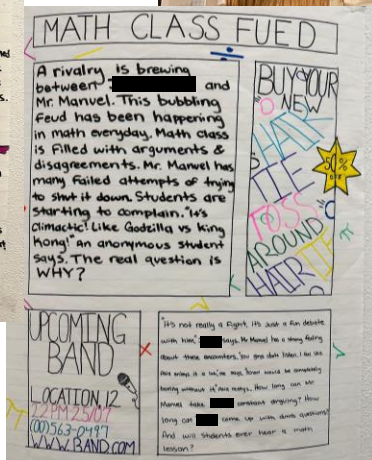 MATH CLASS FUED
A rivalry is brewing
between and
Mr. Manvel. This bubbling
feud has been happening
in math everyday. Math class
is filled with arguments &
disagreements. Mr. Manvel has
many failed attempts of trying
to shut it down. Students are
starting to complain. "it's
climactic! Like Godzilla vs king
Kong!" an anonymous student
says. The real question is
WHY?
BUY YOUR
NEW
HAIR
TIE
TOSS
AROUND
HAIR TIE
50%
OFF
UPCOMING
BAND
LOCATION 12
12PM 25/07
(00)563-0497
WWW.BAND.COM
"It's not really a fight. It's just a fun debate
with him," says. Mr Manvel has a strong feeling
about these encounters.
boring without it" How long can Mr.
Manvel take constant arguing? How
long can come up with dumb questions?
And will students ever hear a math
lesson?